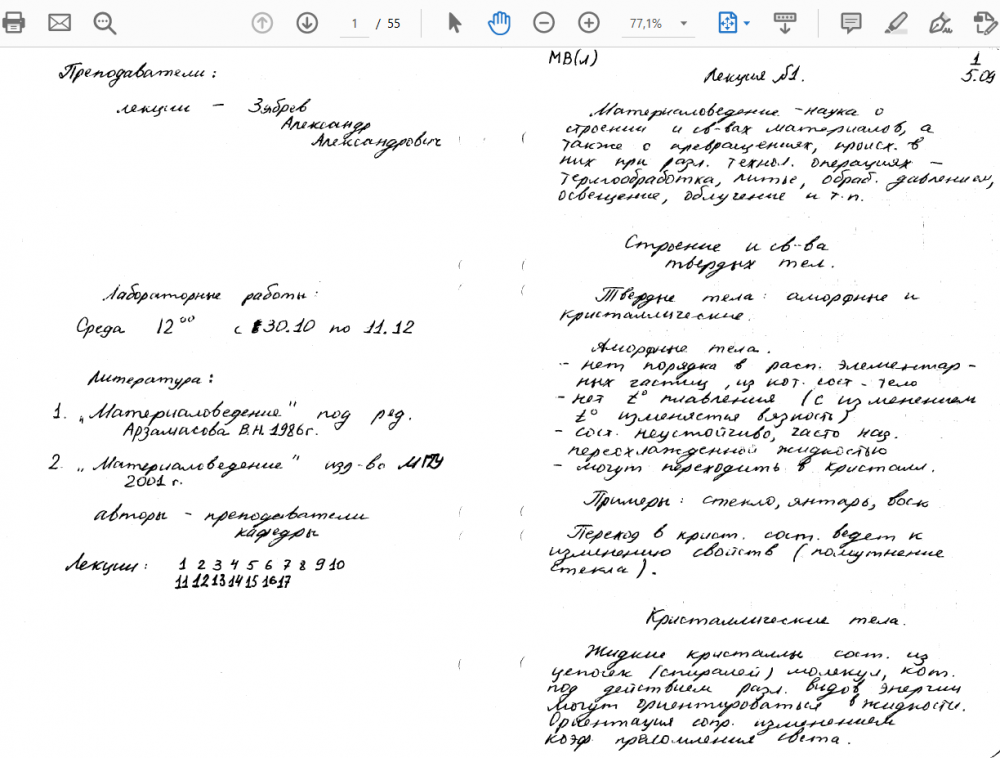 1 / 55
77,1%
Преподаватели:
лекции - Зябрев
Александр
Александрович
Лабораторные работы:
Среда 12⁰⁰ с 30.10 по 11.12
Литература:
1. „Материаловедение" под ред.
Арзамасова В.Н. 1986г.
2. „Материаловедение" изд-во МГТУ
2001 г.
авторы - преподаватели
кафедры
Лекции: 1 2 3 4 5 6 7 8 9 10
11 12 13 14 15 16 17
МВ(л)
1
5.09
Лекция №1.
Материаловедение - наука о
строении и св-вах материалов, а
также о превращениях, происх. в
них при разл. технол. операциях -
термообработка, литье, обраб. давлением,
освещение, облучение и т.п.
Строение и св-ва
твердых тел.
Твердые тела: аморфные и
кристаллические.
Аморфные тела.
- нет порядка в расп. элементар-
ных частиц, из кот. сост. тело
- нет t° плавления (с изменением
t° изменяется вязкость)
- сост. неустойчиво, часто наз.
переохлажденной жидкостью
- могут переходить в кристалл.
Примеры: стекло, янтарь, воск
Переход в крист. сост. ведет к
изменению свойств (помутнение
стекла).
Кристаллические тела.
Жидкие кристаллы сост. из
цепочек (спиралей) молекул, кот.
под действием разл. видов энергии
могут ориентироваться в жидкости.
Ориентация сопр. изменением
коэф. преломления света.